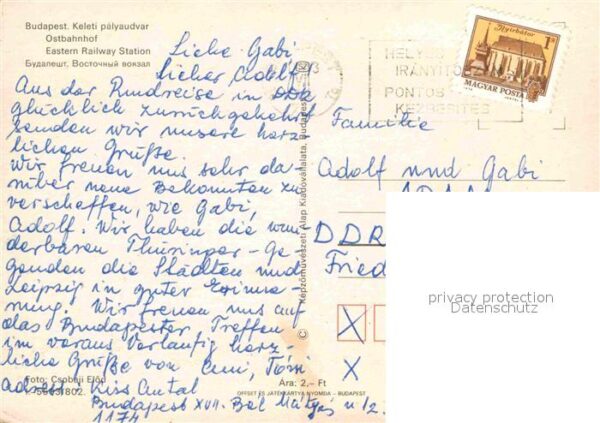 Budapest. Keleti pályaudvar
Ostbahnhof
Eastern Railway Station
Будапешт. Восточный вокзал
Liebe Gabi
Lieber Adolf
Aus der Rundreise in DDR
glücklich zurückgekehrt
senden wir unsere herz
lichen Grüße.
Wir freuen uns sehr da-
rüber neue Bekannten zu
verschaffen, wie Gabi,
Adolf. Wir haben die wun
derbaren Thüringer-Ge
genden die Städten und
Leipzig in guter Erinne-
rung. Wir freuen uns auf
das Budapester Treffen
im voraus Vorläufig herz-
liche Grüße von
Foto: Csobaji Előd
Adress: Kiss Antal
Budapest XVII. Bél Mátyás u 12.
1174
Képzőművészeti Alap Kiadóvállalata, Budapest
Ára: 2,– Ft
OFFSET ÉS JÁTÉKKÁRTYA NYOMDA – BUDAPEST
HELYES
IRÁNYÍTÓ
PONTOS
KÉZBESÍTÉS
Nyírbátor
1 Ft
MAGYAR POSTA
Familie
Adolf und Gabi
DDR
Fried
X
X
privacy protection
Datenschutz